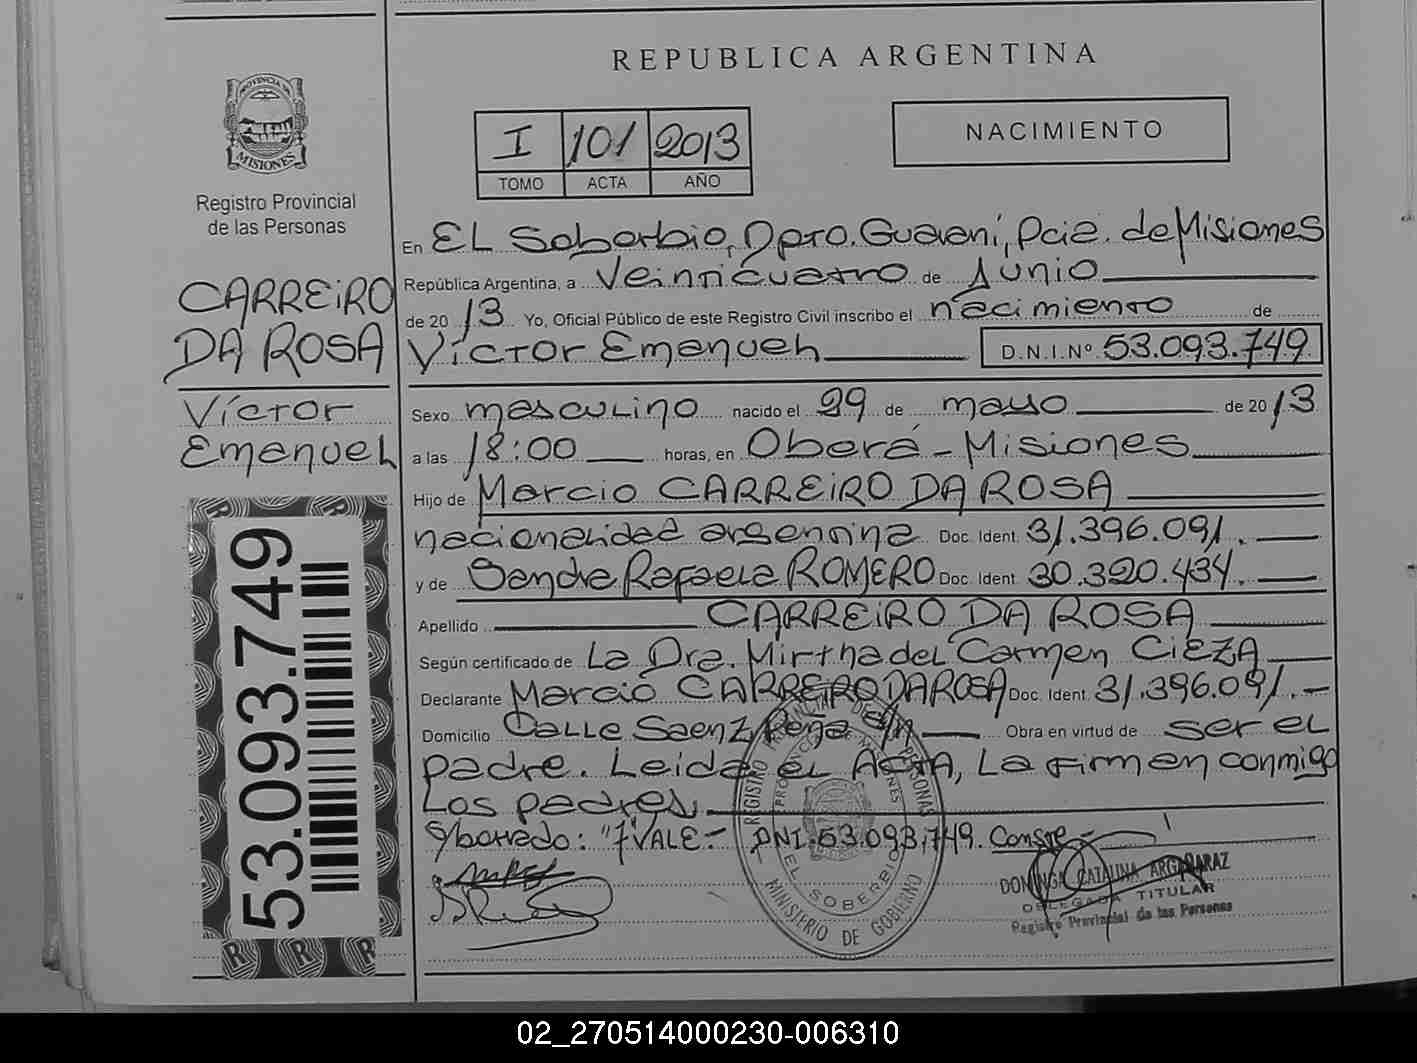 REPUBLICA ARGENTINA
PROVINCIA DE
MISIONES
Registro Provincial
de las Personas
I 101 2013
TOMO ACTA AÑO
NACIMIENTO
CARREIRO
DA ROSA
Víctor
Emanuel
53.093.749
En EL Soberbio, Dpto. Guaraní, Pcia. de Misiones
República Argentina, a Veinticuatro de Junio
de 20 13 Yo, Oficial Público de este Registro Civil inscribo el nacimiento de
Víctor Emanuel D.N.I.Nº 53.093.749
Sexo masculino nacido el 29 de mayo de 20 13
a las 18:00 horas, en Oberá - Misiones
Hijo de Marcio CARREIRO DA ROSA
nacionalidad argentina Doc. Ident. 31.396.091.
y de Sandra Rafaela ROMERO Doc. Ident. 30.320.434.
Apellido CARREIRO DA ROSA
Según certificado de La Dra. Mirtha del Carmen CIEZA
Declarante Marcio CARREIRO DA ROSA Doc. Ident. 31.396.091.-
Domicilio Calle Saenz Peña s/n Obra en virtud de ser el
padre. Leida el ACTA, La firman conmigo
Los padres.
s/borrado: "7" VALE.- DNI.53.093.749. Conste.-
REGISTRO PROVINCIAL DE LAS PERSONAS
PROVINCIA DE MISIONES
EL SOBERBIO
MINISTERIO DE GOBIERNO
DOMINGA CATALINA ARGAÑARAZ
DELEGADA TITULAR
Registro Provincial de las Personas
02_270514000230-006310